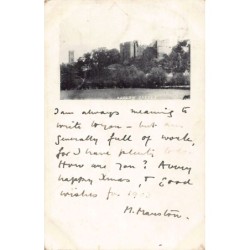 I am always meaning to
write to you - but am
generally full of work,
for I have plenty to do.
How are you? A very
happy Xmas, & Good
wishes for
M. Marston.